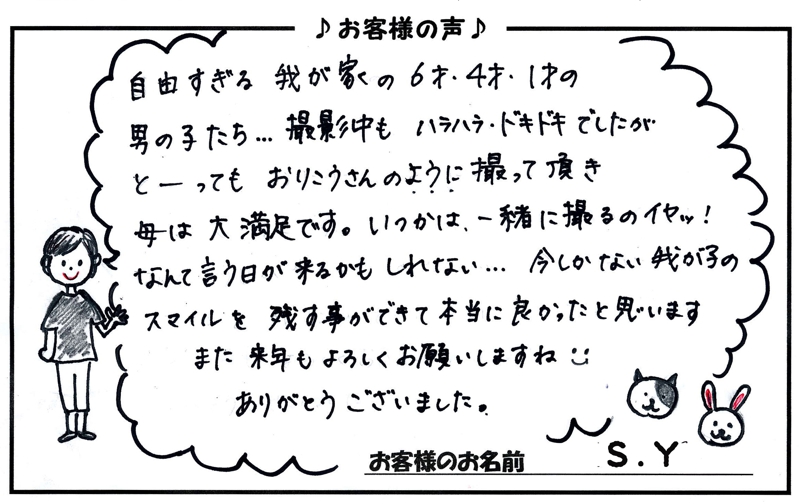 ♪お客様の声♪
自由すぎる 我が家の 6才・4才・1才の
男の子たち… 撮影中も ハラハラ・ドキドキでしたが
と—っても おりこうさんのように 撮って 頂き
母は 大満足です。いつかは、一緒に撮るのイヤッ!
なんて言う日が来るかもしれない… 今しかない我が子の
スマイルを 残す事ができて本当に良かったと思います
また 来年も よろしくお願いしますね
ありがとうございました。
お客様のお名前 S.Y